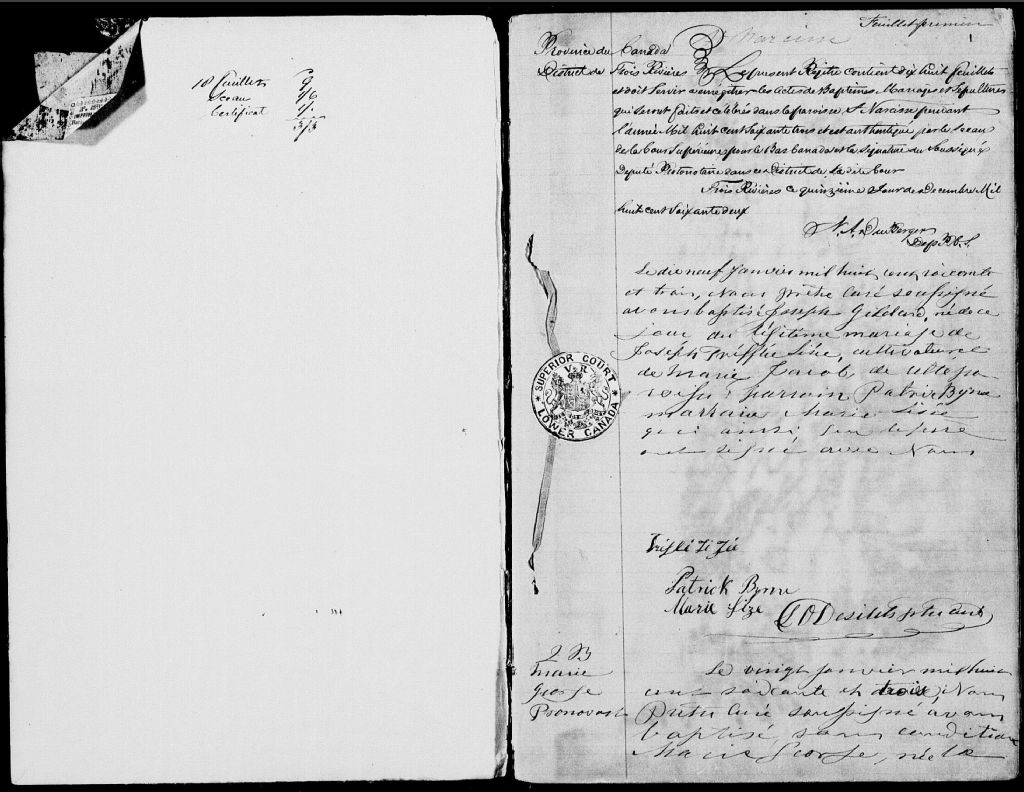 18 feuillets 9
Sceau 3/6
Certificat 1/.
13/3
Feuillet premier
1
St Narcisse
Province du Canada
District de Trois Rivières
Le present Régitre contient dix huit feuillets
et doit servir a enregitrer les Actes de Baptêmes Mariages et Sepultures
qui seront faits et celebrés dans la paroisse St Narcisse pendant
l'année Mil huit cent soixante trois et est authentiqué par le Sceau
de la Cour Superieure pour le Bas Canada et la signature du Soussigné
Deputé Protonotaire dans ce District de la dite Cour
Trois Rivières ce quinzième Jour de Decembre Mil
huit cent soixante deux
N. A. DuBerger
Dep P. C. S.
Le dix neuf janvier mil huit cent soixante
et trois, Nous prêtre curé soussigné
avons baptisé Joseph né de ce
jour du légitime mariage de
Joseph Trifflé cultivateur et
de Marie Jacob de cette pa
roisse; parrain Patrick Byrne
marraine Marie
qui ainsi que le père
ont signé avec Nous
SUPERIOR COURT
V R
LOWER CANADA
Patrick Byrne
Marie Size
Desilets ptre curé
2 B
Marie
George
Pronovost
Le vingt janvier mil huit
cent soixante et trois, Nous
Prêtre curé soussigné avons
baptisé, sans condition
Marie George, née le